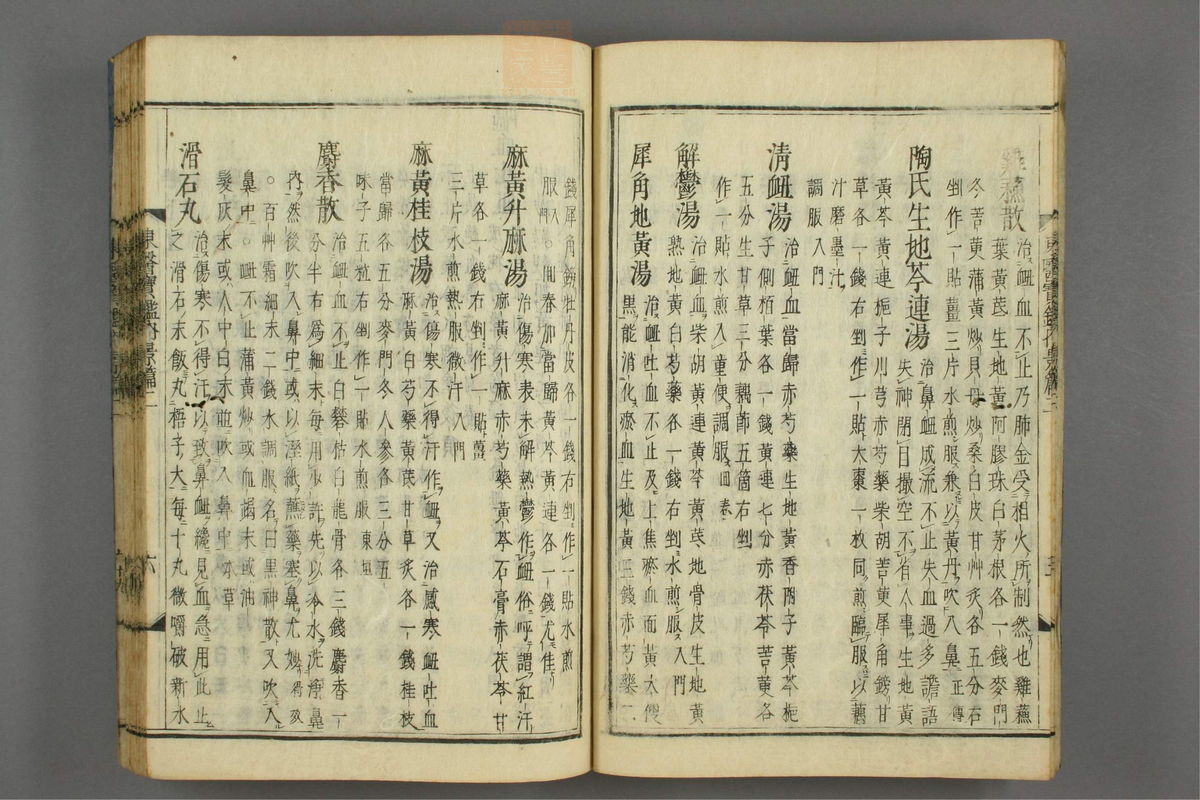 雞蘇散 治衄血不止乃肺金受相火所制然也雞蘇
葉黃芪生地黃阿膠珠白茅根各一錢麥門
冬蒲黃炒貝母炒桑白皮甘艸炙各五分右
剉作一貼薑三片水煎服兼以黃丹吹入鼻 正傳
陶氏生地芩連湯 治鼻衄成流不止失血過多譫語
失神閉目撮空不省人事生地黃
黃芩黃連梔子川芎赤芍藥柴胡苦莄犀角鎊甘
草各一錢右剉作一貼大棗一枚同煎臨服以藕
汁磨墨汁
調服入門
清衄湯 治衄血當歸赤芍藥生地黃香附子黃芩梔
子側栢葉各一錢黃連七分赤茯苓苦莄各
五分生甘草三分藕節五箇右剉
作一貼水煎入童便調服 回春
解鬱湯 治衄血柴胡黃連黃芩黃芪地骨皮生地黃
熟地黃白芍藥各一錢右剉水煎服 入門
犀角地黃湯 治衄吐血不止及上焦瘀血面黃大便
黑能消化瘀血生地黃三錢赤芍藥二
錢犀角鎊牡丹皮各一錢右剉作一貼水煎
服 入門○回春加當歸黃芩黃連各一錢尤佳
麻黃升麻湯 治傷寒表未解熱鬱作衄俗呼謂紅汗
麻黃升麻赤芍藥黃芩石膏赤茯苓甘
草各一錢右剉作一貼薑
三片水煎熱服微汗 入門
麻黃桂枝湯 治傷寒不得汗作衄又治感寒衄吐血
麻黃白芍藥黃芪甘草炙各一錢桂枝
當歸各五分麥門冬人參各三分五
味子五粒右剉作一貼水煎服 東垣
麝香散 治衄血不止白礬枯白龍骨各三錢麝香一
分半右爲細末每用少許先以冷水洗淨鼻
內然後吹入鼻中或以溼紙蘸藥塞鼻尤妙
○百艸霜細末二錢水調服名曰黑神散又吹入
鼻中○衄不止蒲黃炒或血竭末或油
髮灰末或人中白末並吹入鼻中 本草
滑石丸 治傷寒不得汗以致鼻衄纔見血急用此止
之滑石末飯丸梧子大每十丸微嚼破新水
東醫寶鑑內景篇二